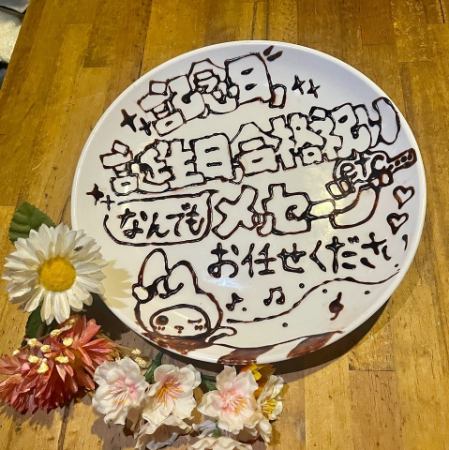 記念日、
誕生日合格祝い
なんでもメッセージetc
お任せください